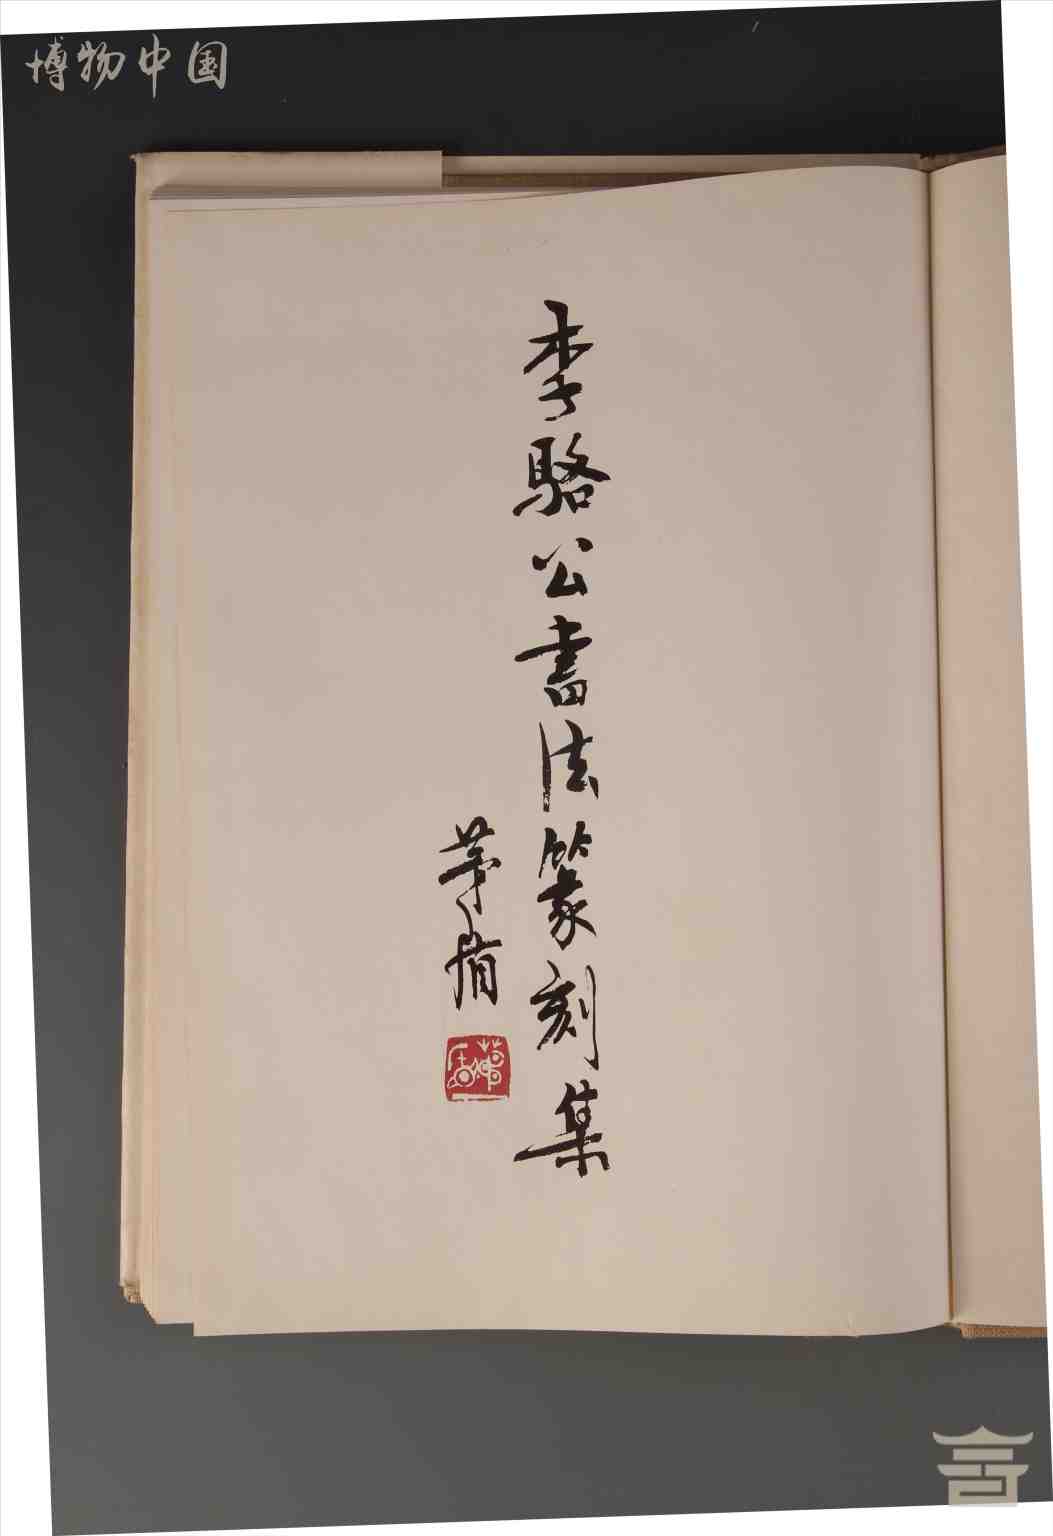 博物中国
李駱公書法篆刻集
茅盾